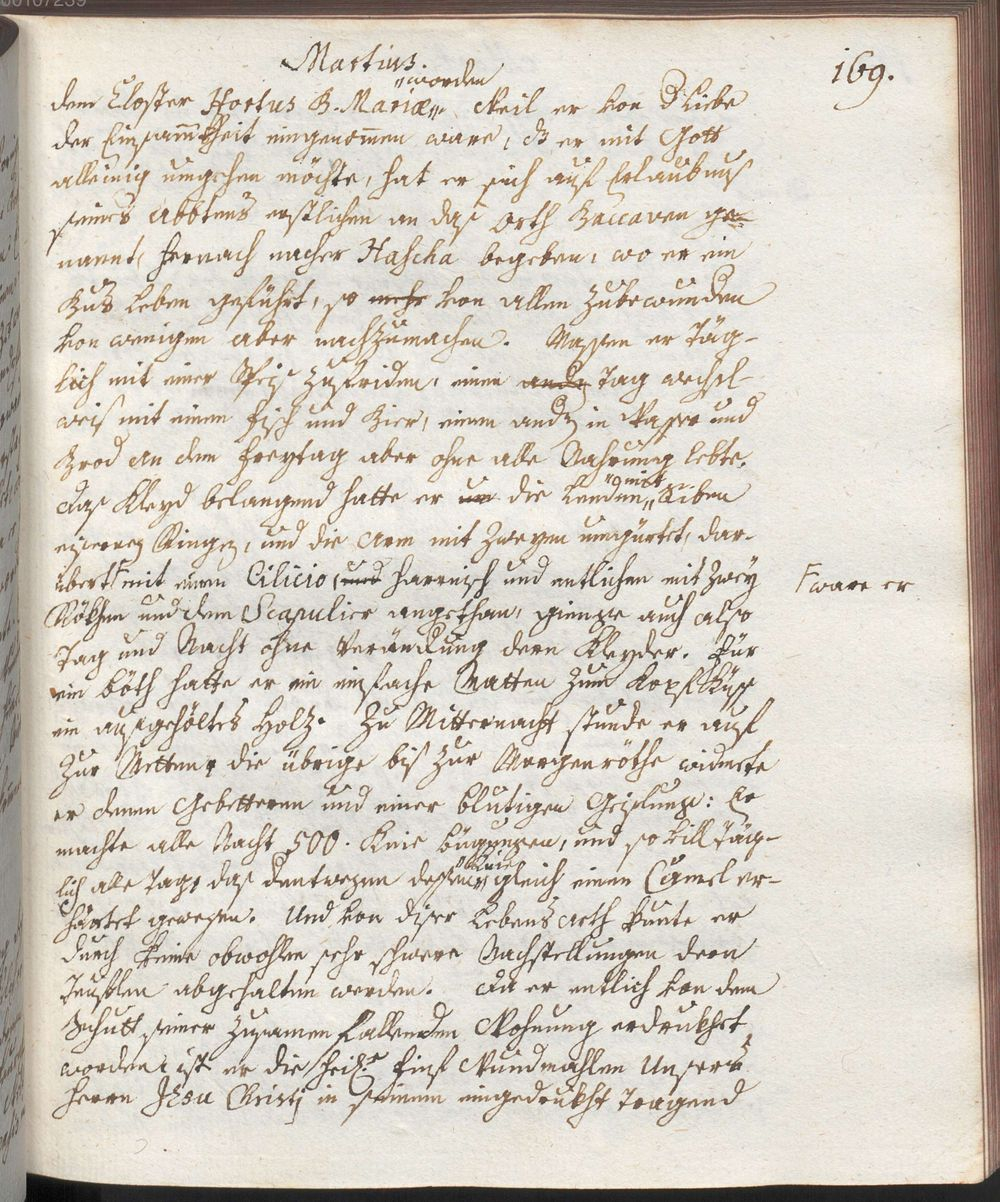 00107239
Martius.
169.
„worden
dem Closter Hortus B. Mariæ„ Weil er von d Liebe
der Einsamkheit eingenomen ware, dz er mit Gott
alleinig umgehen möchte, hat er sich auß Erlaubnuß
seines Abbtens erstlichen an daß orth Baccaven ge-
nannt, hernach nacher Hascha begeben, wo er ein
Bus Leben geführt, so mehr von allen zubewunden
von wenigen aber nachzumachen. Massen er Täg-
lich mit einer Speiß zufriden, einen andr Tag wechsel-
weiß mit einen Fisch und Bier, einen andr in Wasser und
Brod an dem Freytag aber ohne alle Nahrung lebte.
„mit
Das Kleyd belangend hatte er um die Lenden„ Siben
eisernen Ringen, und die Arm mit Zweyen umgürtet, dar-
übert F mit einen Cilicio, und Harnisch und entlichen mit Zwey
F ware er
Rökhen und dem Scapulier angethan, gienge auch also
Tag und Nacht ohne Verändung dern Kleyder. Für
ein böth hatte er ein einfache Matten Zum Kopfküß
ein außgehöltes Holtz. Zu Mitternacht stunde er auf
Zur Metten, die übrige biß Zur Morgenröthe widmete
er denen Gebetteren und einer blutigen Geislung: Er
machte alle Nacht 500. Knie bügungen, und so vill Täg-
„Knie
lich alle Tag, das dentwegen dessen„ gleich einen Camel er-
härtet gewesen. Und von diser Lebens Arth kunte er
durch keine obwohlen sehr schwere Nachstellungen dern
Teufflen abgehalten werden. Da er entlich von dem
Schutt seiner Zusamen fallenden Wohnung erdrukhet
worden, ist er die heil. Fünf Wundmahlen Unsers
Herrn Jesu Christi in seinem eingedrukht Tragend